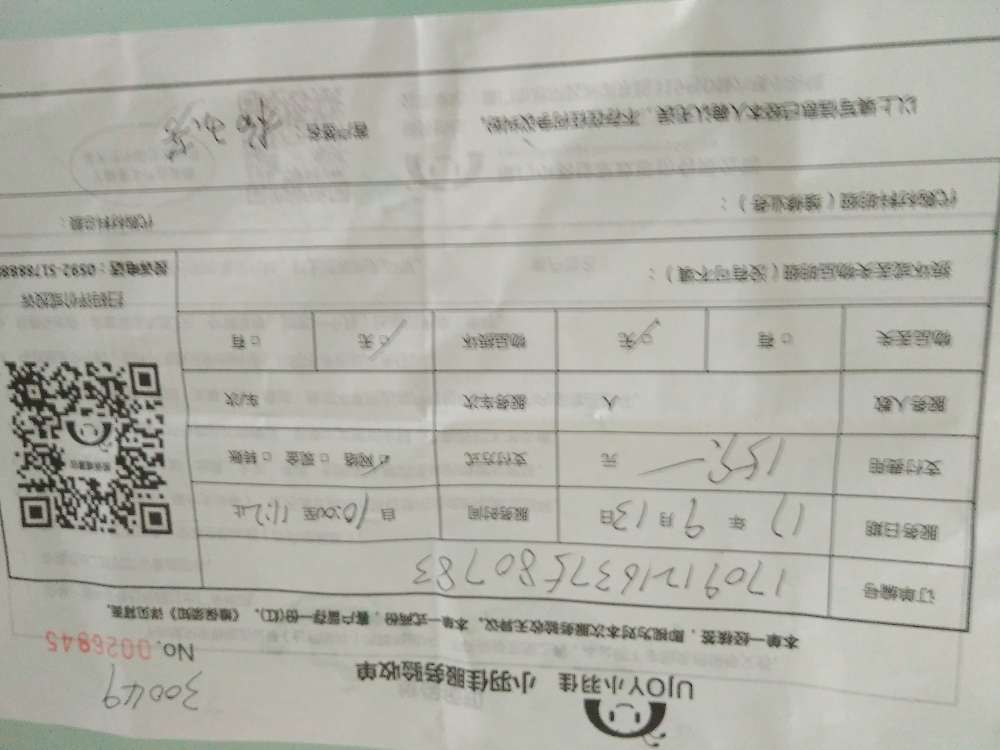 UJOY小羽佳 小羽佳服务验收单
30049
No. 0026945
本单一经核签，即视为对本次服务验收无异议。本单一式两份，客户留存一份(红)。《维保须知》详见背面。
订单编号 1709121637580783
服务日期 17 年 9 月 13 日 服务时间 自 10:00 至 11:22 止
支付费用 155. 元 支付方式 ☑网络 □现金 □转账
服务人数 人 服务车次 车/次
物品丢失 □有 ☑无 物品损坏 ☑无 □有
损坏或丢失物品明细（没有可不填）：
扫码评价或投诉
投诉电话：0592-5178888
代购材料明细（维修业务）：
代购材料总额：
以上填写信息已经本人确认无误、不存在任何争议纠纷。
客户签名：